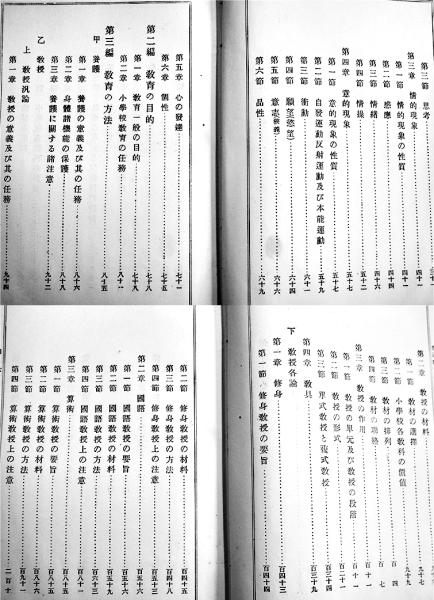 第三節 思考
第三章 情的現象
第一節 情的現象の性質
第二節 感應
第三節 情緒
第四節 情操
第四章 意的現象
第一節 意的現象の性質 五十七
第二節 自發運動反射運動及び本能運動 五十九
第三節 衝動
第四節 願望(慾望) 六十四
第五節 意志(狹義) 六十七
第六節 品性 六十九
第五章 心の發達 七十一
第六章 個性 七十五
第二編 教育の目的 七十八
第一章 教育一般の目的 七十八
第二章 小學校教育の任務 八十一
第三編 教育の方法 八十五
甲 養護
第一章 養護の意義及び其の任務 八十六
第二章 身體諸機能の保護 八十八
第三章 養護に關する諸注意 九十二
乙 教授
上 教授汎論
第一章 教授の意義及び其の任務 九十四
第二章 教授の材料 九十七
第一節 教材の選擇 九十七
第二節 小學校各教科の價値
第三節 教材の排列 百四
第四節 教材の聯絡 百七
第三章 教授の作用 百十一
第一節 教授の單元及び教授の段階 百十一
第二節 教授の形式 百二十一
第三節 單式教授と複式教授
第四章 教具 百三十九
下 教授各論
第一章 修身 百四十三
第一節 修身教授の要旨 百四十四
第二節 修身教授の材料 百四十五
第三節 修身教授の方法 百四十八
第四節 修身教授上の注意 百五十三
第二章 國語 百五十五
第一節 國語教授の要旨 百五十五
第二節 國語教授の材料 百五十六
第三節 國語教授の方法 百六十三
第四節 國語教授上の注意
第三章 算術 百八十五
第一節 算術教授の要旨 百八十五
第二節 算術教授の材料 百八十六
第三節 算術教授の方法 百九十一
第四節 算術教授上の注意 二百十